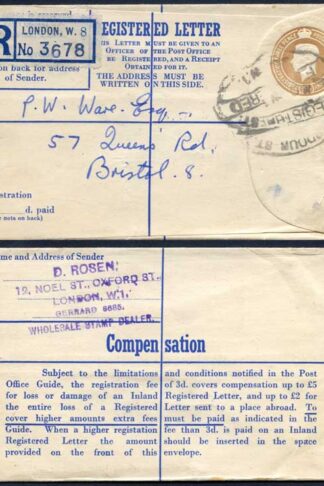 R LONDON, W. 8
No 3678
REGISTERED LETTER
THIS LETTER MUST BE GIVEN TO AN
OFFICER OF THE POST OFFICE
TO BE REGISTERED, AND A RECEIPT
OBTAINED FOR IT.
THE ADDRESS MUST BE
WRITTEN ON THIS SIDE.
on back for address
of Sender.
P. W. Ware. Esq.
57 Queens Rd,
Bristol. 8.
istration
d. paid
(see note on back)
me and Address of Sender
D. ROSEN,
12, NOEL ST., OXFORD ST.,
LONDON, W.1.
GERRARD 5665.
WHOLESALE STAMP DEALER.
Compensation
Subject to the limitations and conditions notified in the Post
Office Guide, the registration fee of 3d. covers compensation up to £5
for loss or damage of an Inland Registered Letter, and up to £2 for
the entire loss of a Registered Letter sent to a place abroad. To
cover higher amounts extra fees must be paid as indicated in the
Guide. When a higher registration fee than 3d. is paid on an Inland
Registered Letter the amount should be inserted in the space
provided on the front of this envelope.